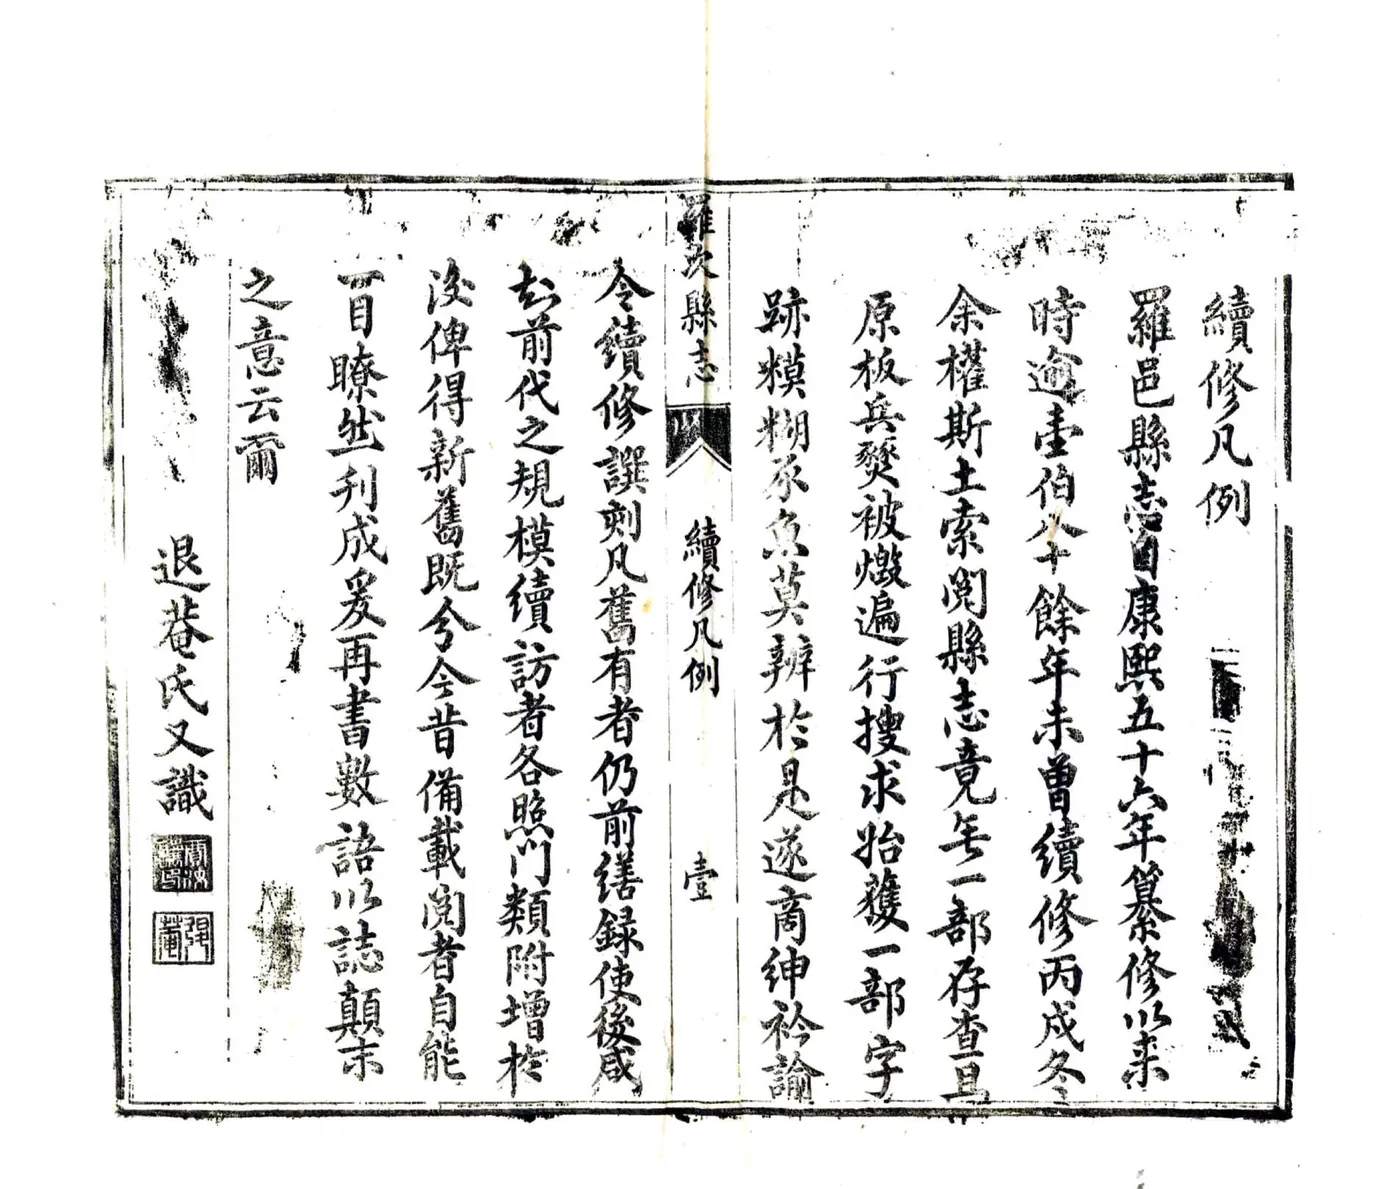 續修凡例
羅邑縣志自康熙五十六年纂修以来
時逾壹伯八十餘年未曾續修丙戍冬
余權斯土索閲縣志竟無一部存查且
原板兵燹被燬遍行搜求始獲一部字
跡糢糊豕魚莫辨於是遂商紳衿諭
羅次縣志
續修凡例
壹
令續修譔刻凡舊有者仍前繕録使後咸
知前代之規模續訪者各照門類附增於
後俾得新舊既分今昔備載閲者自能
一目瞭然刋成爰再書數語以誌顛末
之意云爾
退菴氏又識